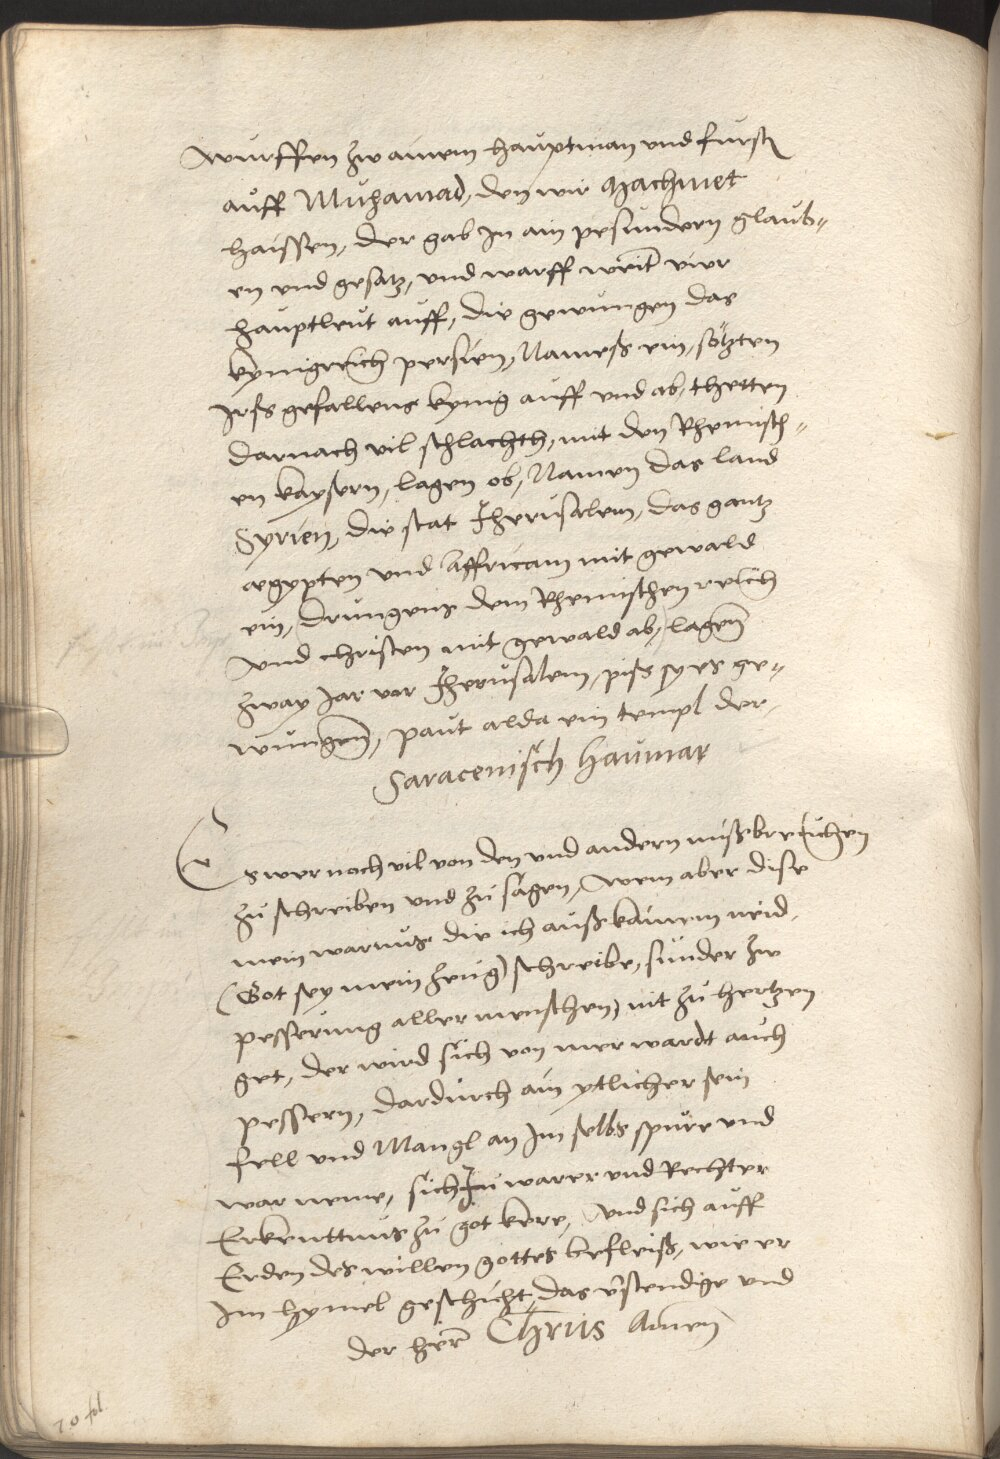 wurffen zw ainem hauptman und furst
auff Muhamad, den wir Machmet
haissen, der gab in ain pesundern glaub⸗
en und gesatz, und warff weit vier
hauptleut auff, die gewungen das
kynigreich persien, Namenß ein, sötzten
irß gefallens kynig auff und ab, thetten
darnach vil schlachth, mit den Rhemisch⸗
en kaysern, lagen ob, Namen das land
Syrien, die stat Jherusalem, das gantz
aegypten und Affricam mit gewald
ein, drungens dem Rhemischen reich
und christen mit gewald ab, lagen
zway Jar vor Jherusalem, piß sy es ge⸗
wungen, paut alda ein templ der
Saracenisch Haumar
Es wer noch vil von den und andern mißbreuchen
zu schreiben und zu sagen, Wem aber dise
mein warnus die ich auß kainem neid
(Got sey mein zeug) schreibe, sunder zw
pesserung aller menschen, nit zu hertzen
get, der wird sich von mer wardt auch
pessern, dardurch ain ytlicher sein
fell und Mangl an Im selbs spüre und
war neme, sich in warer und Rechter
Erkenttnus zu got kere, und sich auff
Erden des willen gottes befleiß, wie er
Im hymel geschicht, das verstendige und
der herr Christus Amen
70 fol